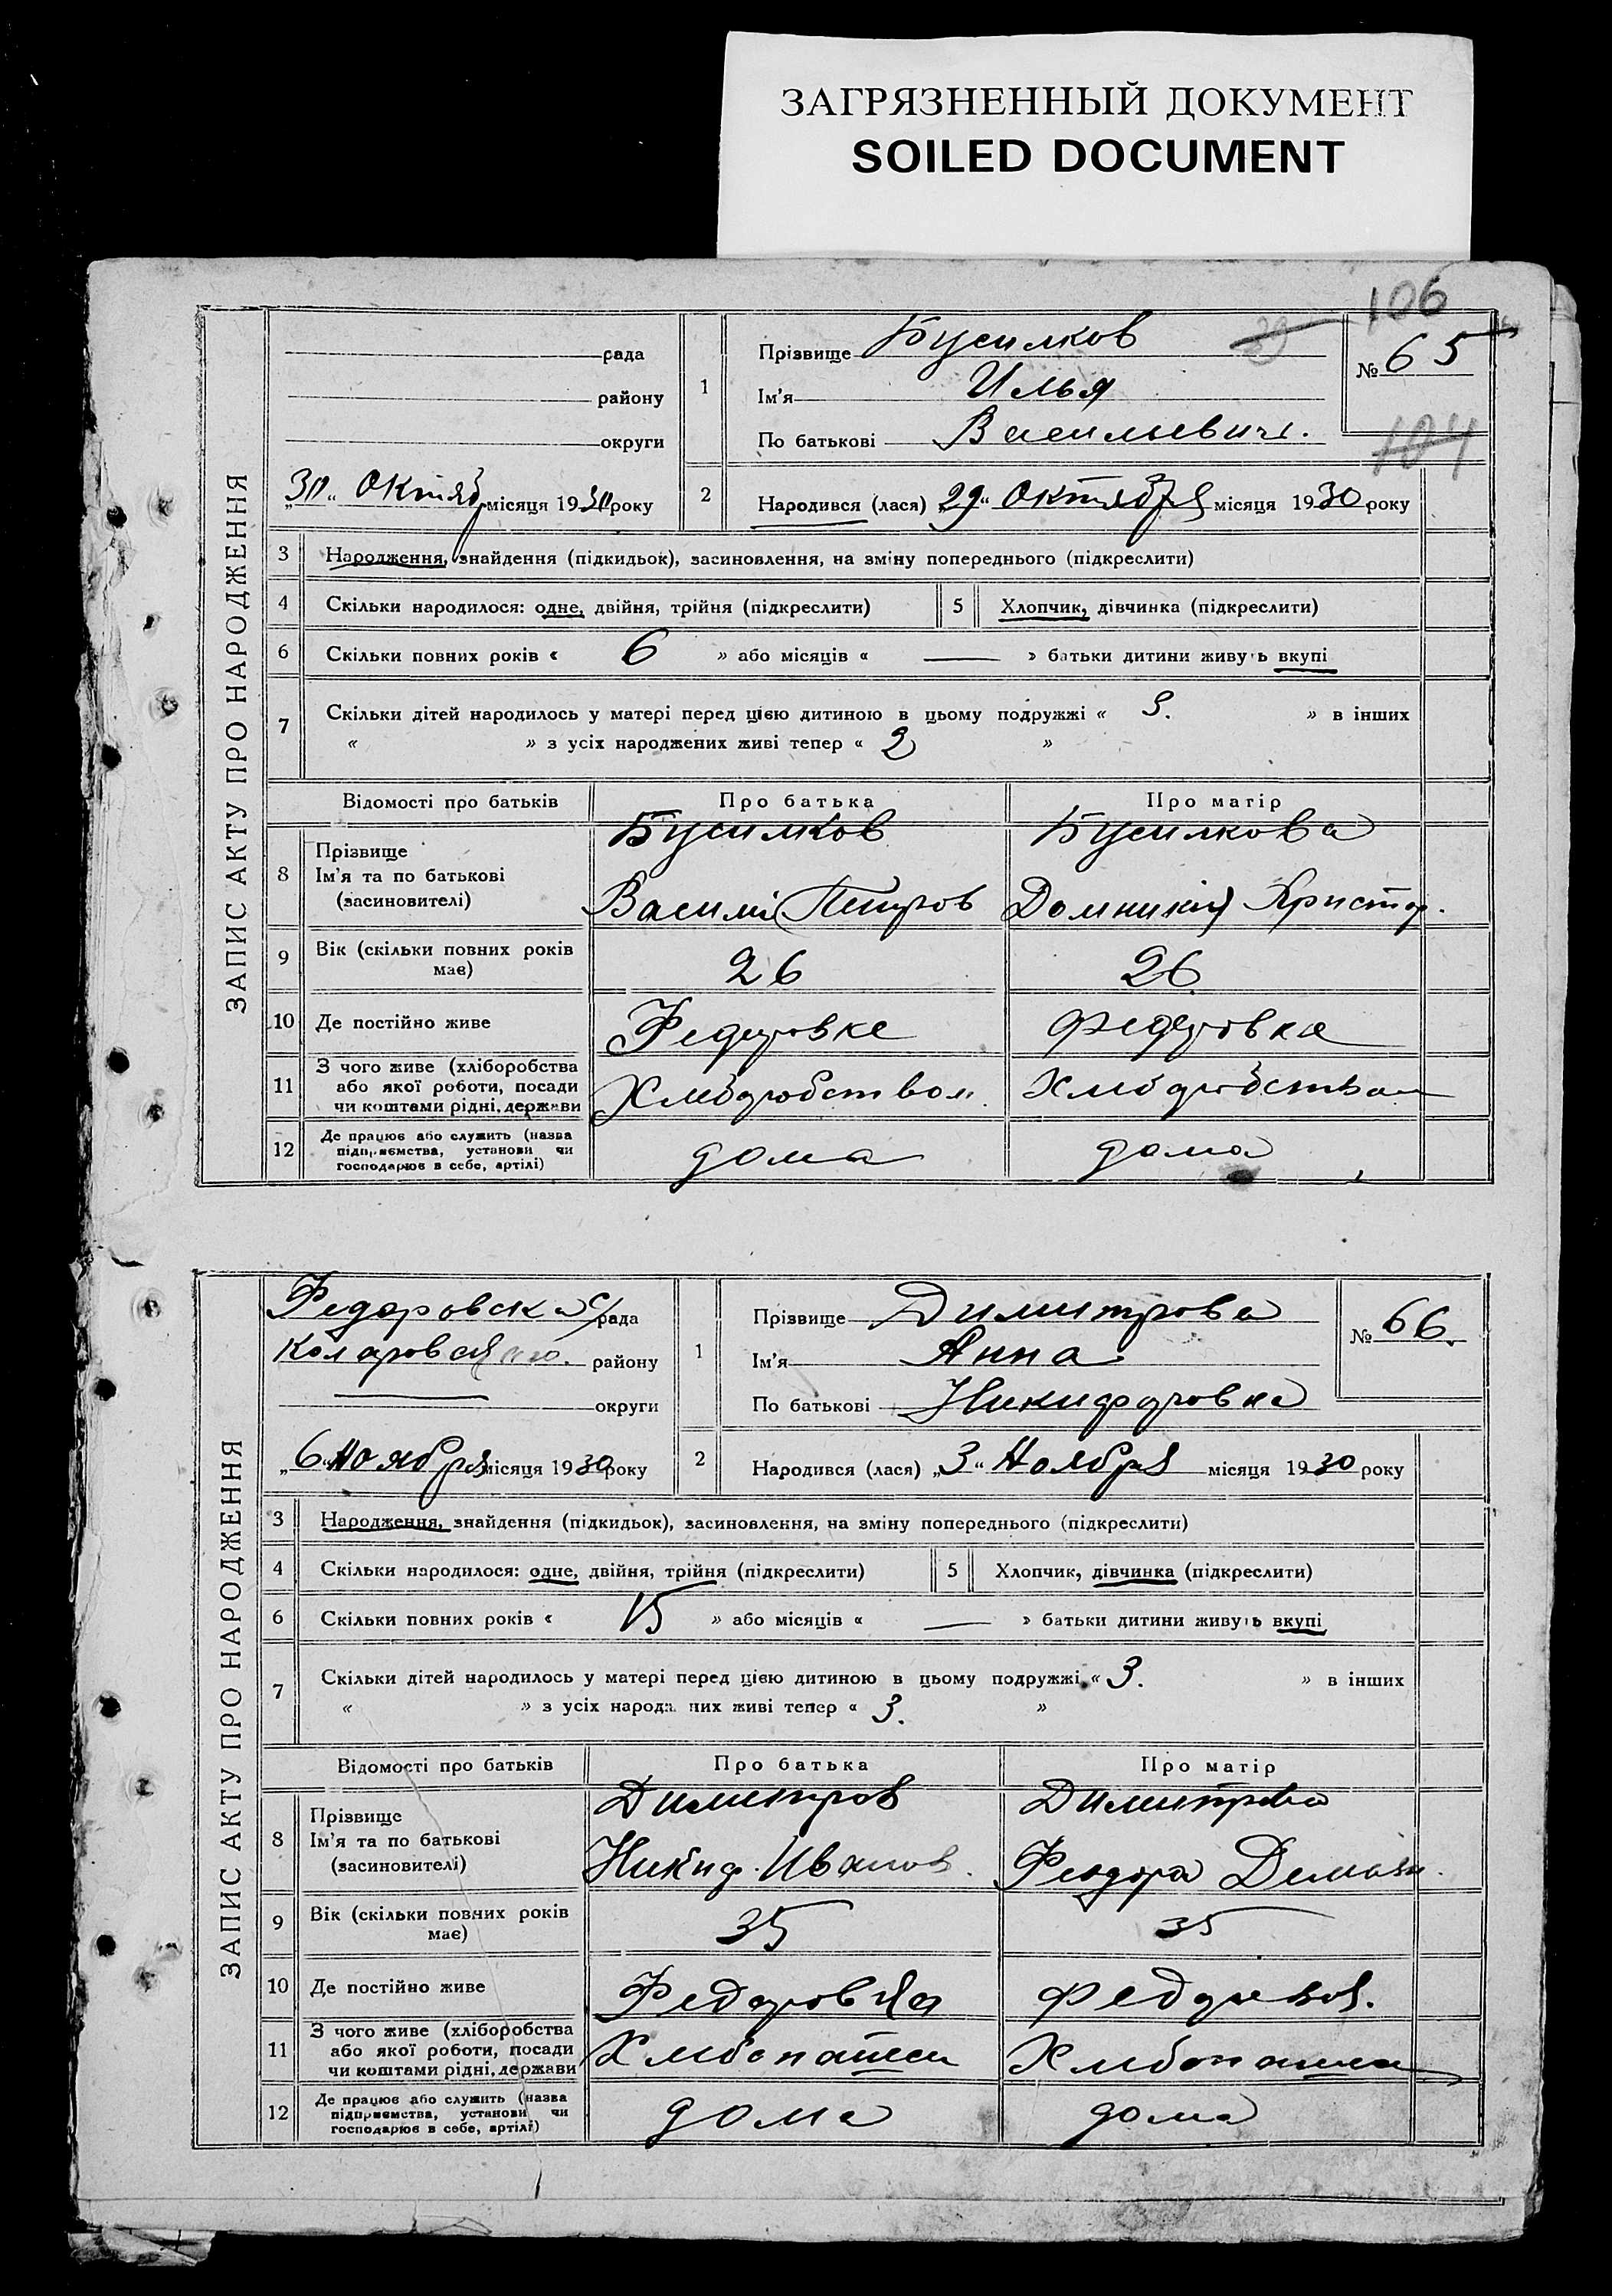 ЗАГРЯЗНЕННЫЙ ДОКУМЕНТ
SOILED DOCUMENT
106
ЗАПИС АКТУ ПРО НАРОДЖЕННЯ
рада
району
округи
„30“ Октяб місяця 1930 року
1 Прізвище Бусилков
Ім'я Илья
По батькові Васильевич.
№ 65
104
2 Народився (лася) „29“ Октября місяця 1930 року
3 Народження, знайдення (підкидьок), засиновлення, на зміну попереднього (підкреслити)
4 Скільки народилося: одне, двійня, трійня (підкреслити) 5 Хлопчик, дівчинка (підкреслити)
6 Скільки повних років « 6 » або місяців « — » батьки дитини живуть вкупі
7 Скільки дітей народилось у матері перед цією дитиною в цьому подружжі « 3. » в інших
« » з усіх народжених живі тепер « 2 »
Відомості про батьків Про батька Про матір
8 Прізвище
Ім'я та по батькові
(засиновителі)
Бусилков
Василий Петров
Бусилкова
Домникия Христоф.
9 Вік (скільки повних років
має) 26 26
10 Де постійно живе Федоровке Федоровка
11 З чого живе (хліборобства
або якої роботи, посади
чи коштами рідні, держави
Хлеборобством. Хлеборобством
12 Де працює або служить (назва
підприємства, установи чи
господарює в себе, артілі)
дома дома
ЗАПИС АКТУ ПРО НАРОДЖЕННЯ
Федоровска с/рада
Коларовского. району
— округи
„6“ Ноября місяця 1930 року
1 Прізвище Димитрова
Ім'я Анна
По батькові Никифоровна
№ 66.
2 Народився (лася) „3“ Ноября місяця 1930 року
3 Народження, знайдення (підкидьок), засиновлення, на зміну попереднього (підкреслити)
4 Скільки народилося: одне, двійня, трійня (підкреслити) 5 Хлопчик, дівчинка (підкреслити)
6 Скільки повних років « 15 » або місяців « — » батьки дитини живуть вкупі
7 Скільки дітей народилось у матері перед цією дитиною в цьому подружжі « 3. » в інших
« » з усіх народжених живі тепер « 3. »
Відомості про батьків Про батька Про матір
8 Прізвище
Ім'я та по батькові
(засиновителі)
Димитров
Никиф. Иванов.
Димитрова
Феодора
9 Вік (скільки повних років
має) 35 35
10 Де постійно живе Федоровка
11 З чого живе (хліборобства
або якої роботи, посади
чи коштами рідні, держави
12 Де працює або служить (назва
підприємства, установи чи
господарює в себе, артілі)
дома дома